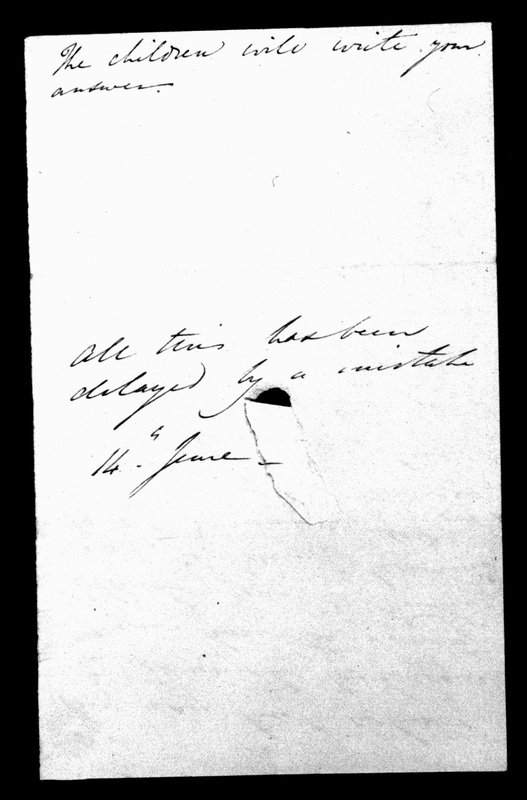 The children will write your
answer.
all this has been
delayed by a mistake
14 " June